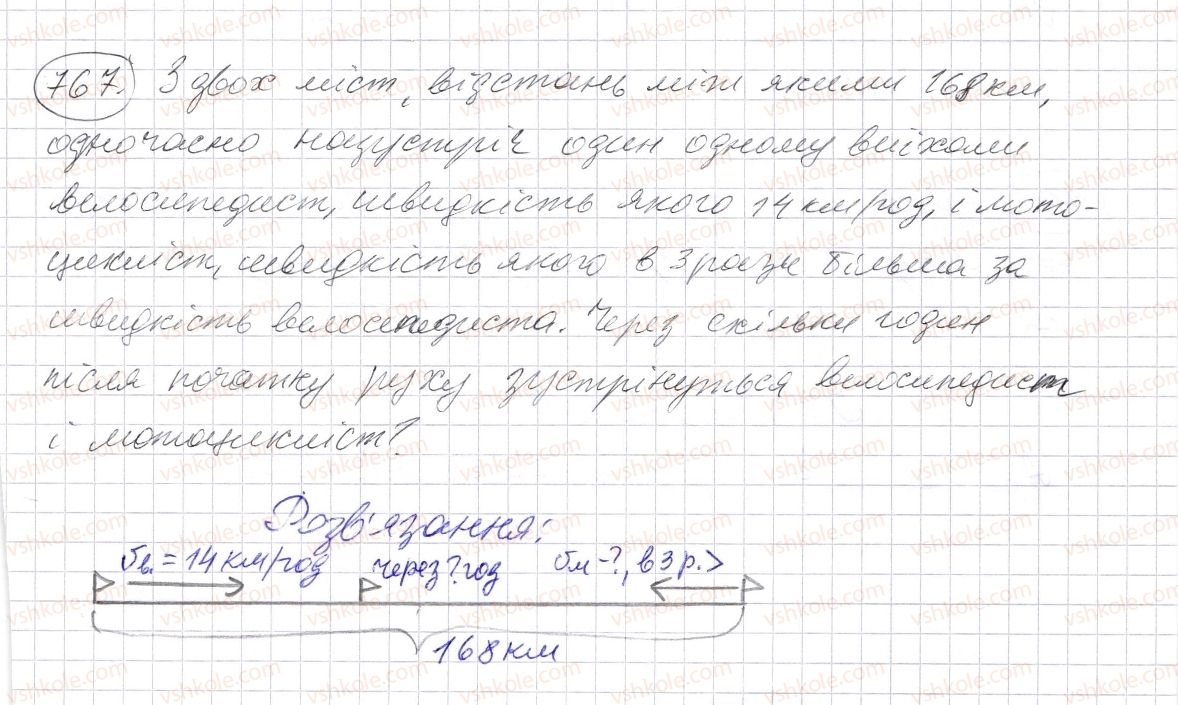 767. З двох міст, відстань між якими 168 км,
одночасно назустріч один одному виїхали
велосипедист, швидкість якого 14 км/год, і мото-
цикліст, швидкість якого в 3 рази більша за
швидкість велосипедиста. Через скільки годин
після початку руху зустрінуться велосипедист
і мотоцикліст?
Розв'язання:
υв. = 14 км/год через ? год υм - ?, в 3 р. >
168 км